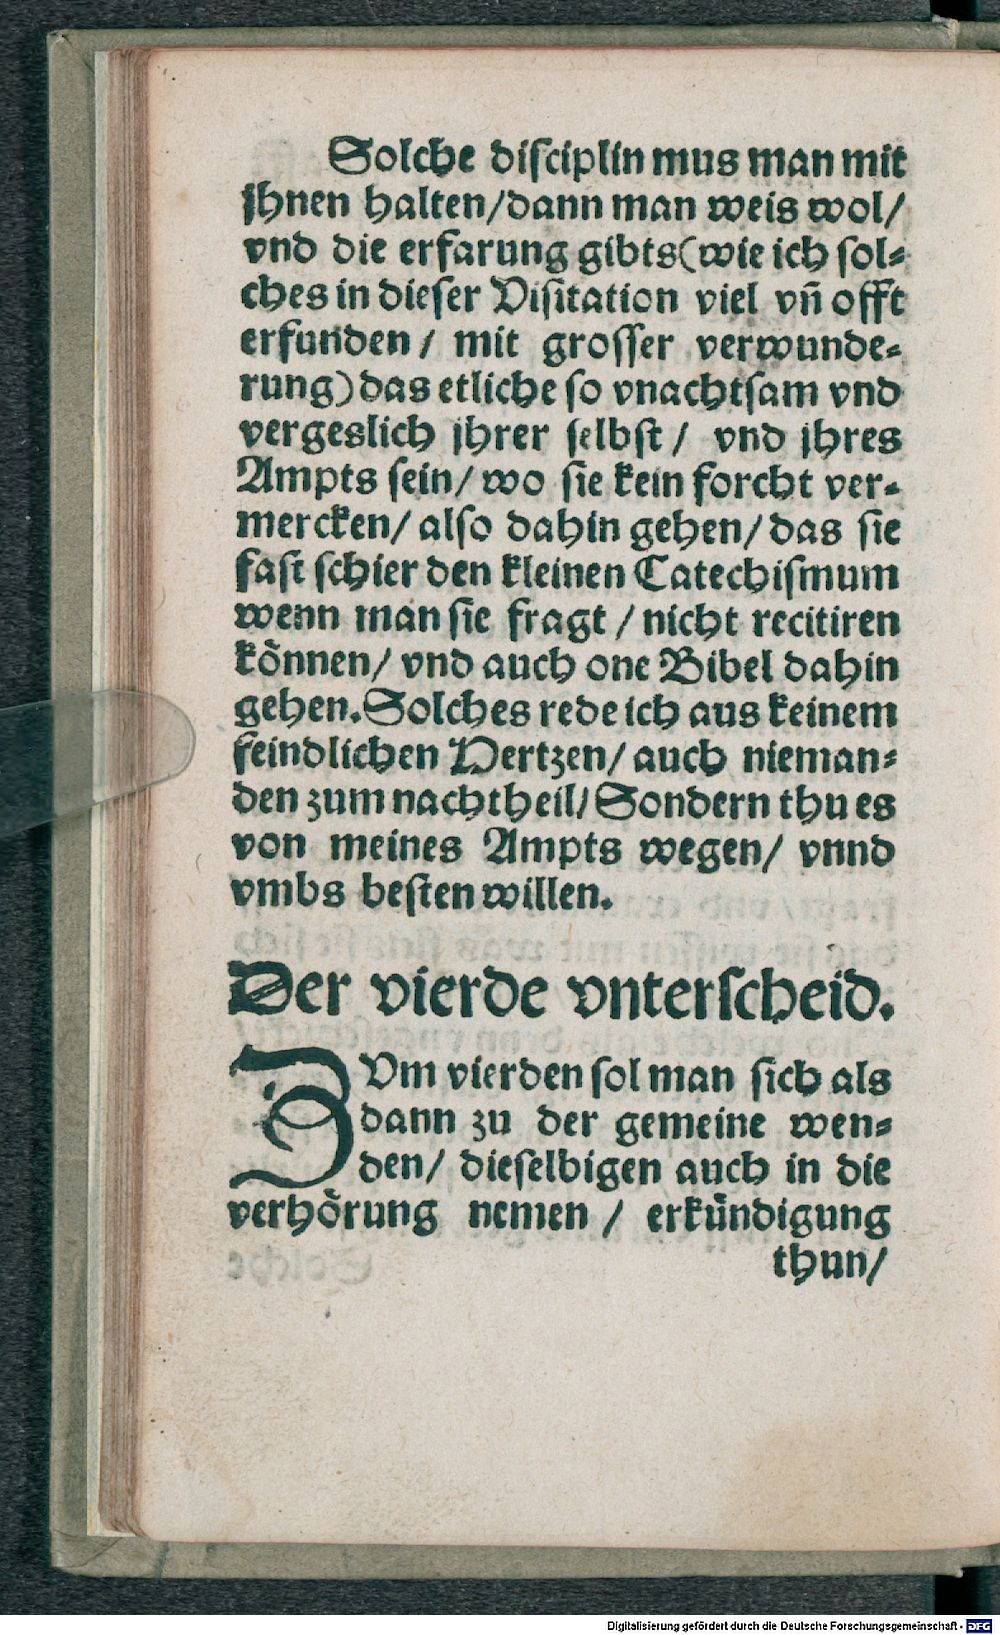 Solche disciplin mus man mit
jhnen halten/dann man weis wol/
vnd die erfarung gibts(wie ich sol⸗
ches in dieser Visitation viel vñ offt
erfunden / mit grosser verwunde⸗
rung) das etliche so vnachtsam vnd
vergeslich jhrer selbst / vnd jhres
Ampts sein/ wo sie kein forcht ver⸗
mercken/ also dahin gehen/ das sie
fast schier den kleinen Catechismum
wenn man sie fragt / nicht recitiren
koͤnnen/ vnd auch one Bibel dahin
gehen. Solches rede ich aus keinem
feindlichen Hertzen/ auch nieman⸗
den zum nachtheil/ Sondern thu es
von meines Ampts wegen/ vnnd
vmbs besten willen.
Der vierde vnterscheid.
ZVm vierden sol man sich als
dann zu der gemeine wen⸗
den/ dieselbigen auch in die
verhoͤrung nemen / erkuͤndigung
thun/
Digitalisierung gefördert durch die Deutsche Forschungsgemeinschaft - DFG